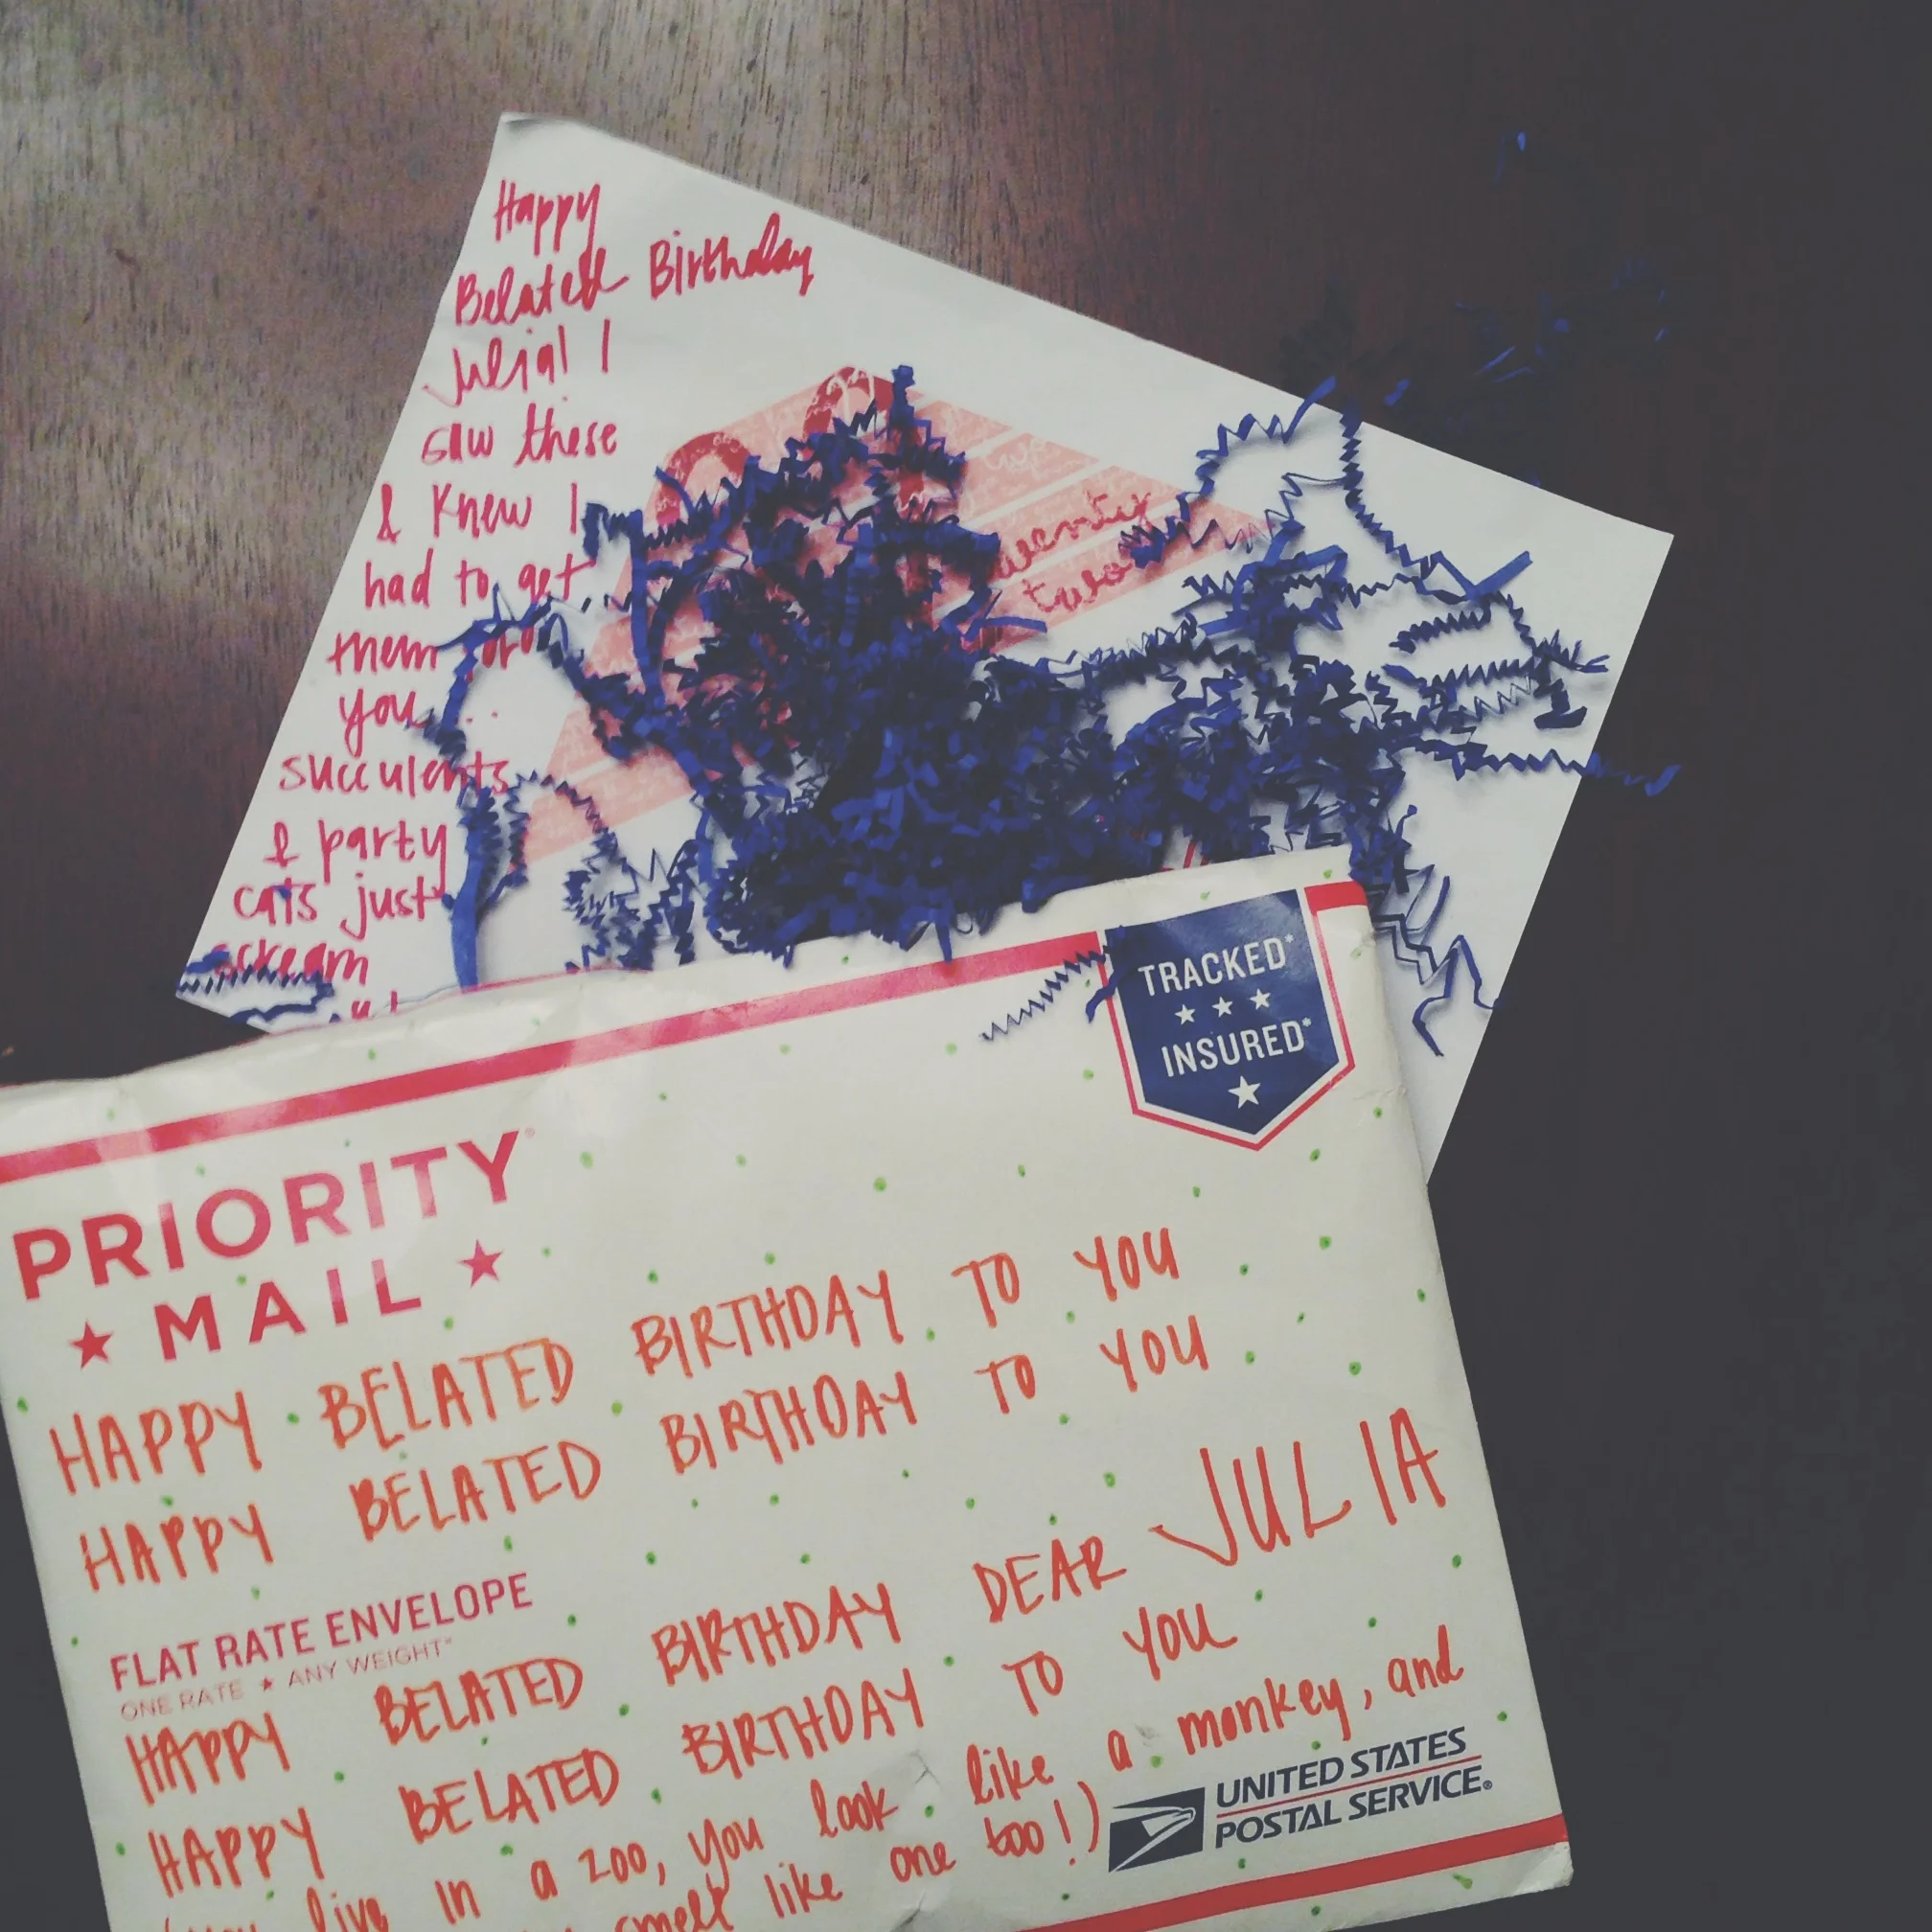 Happy
Belated Birthday
Julia! I
saw these
& knew I
had to get
them for
you...
succulents
& party
cats just
scream
twenty
two
TRACKED*
INSURED*
PRIORITY
MAIL
HAPPY BELATED BIRTHDAY TO YOU
HAPPY BELATED BIRTHDAY TO YOU
FLAT RATE ENVELOPE
ONE RATE ★ ANY WEIGHT*
HAPPY BELATED BIRTHDAY DEAR JULIA
HAPPY BELATED BIRTHDAY TO YOU
(you live in a zoo, you look like a monkey, and
smell like one too!)
UNITED STATES
POSTAL SERVICE®